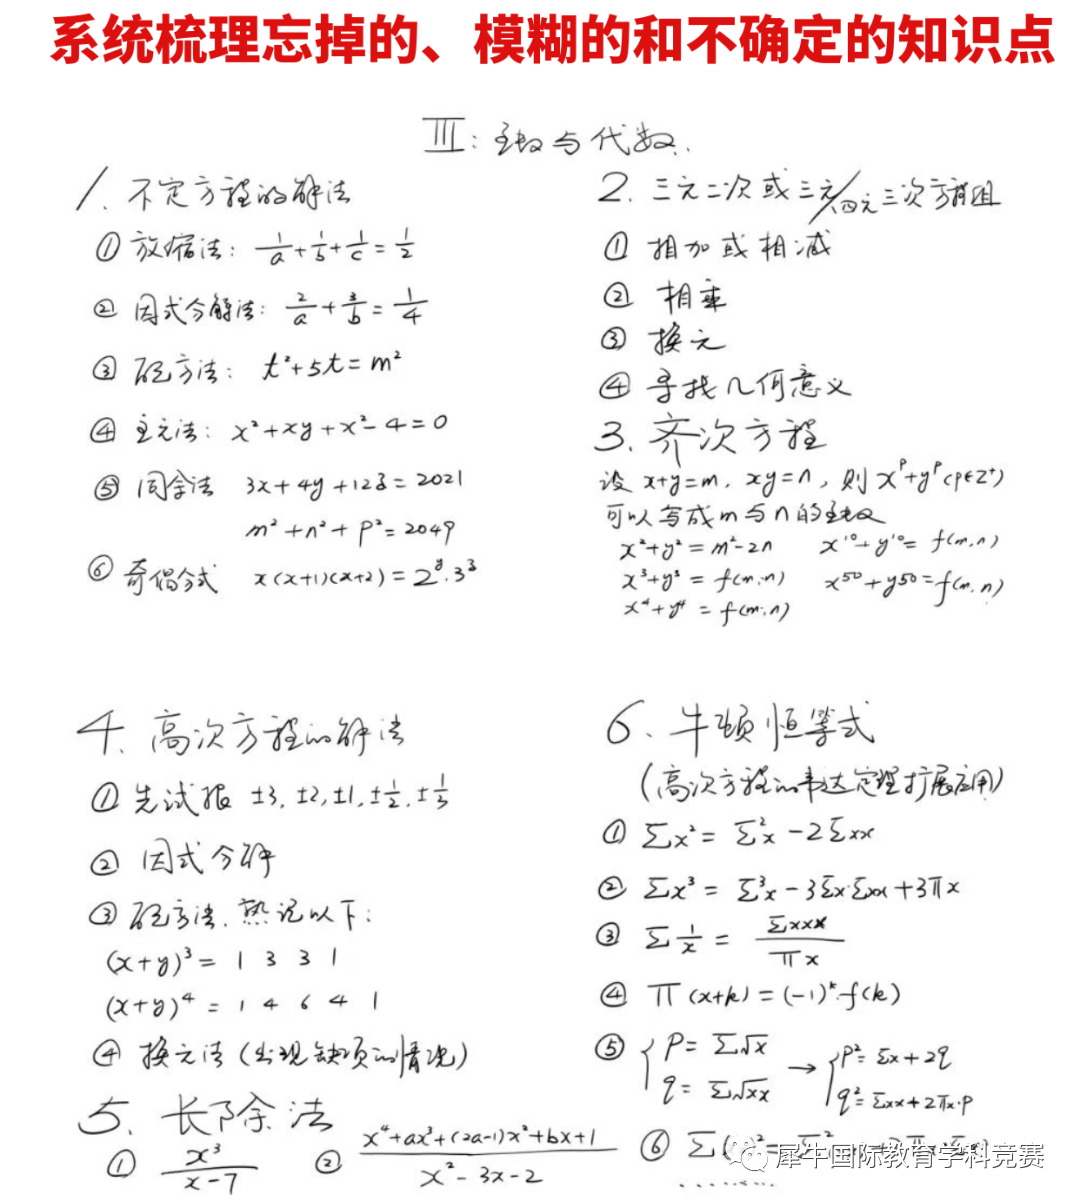 系统梳理忘掉的、模糊的和不确定的知识点
III: 函数与代数.
1. 不定方程的解法
① 放缩法: 1/a + 1/b + 1/c = 1/2
② 因式分解法: 2/a + 3/b = 1/4
③ 配方法: t²+5t=m²
④ 主元法: x²+xy+x²-4=0
⑤ 同余法 3x+4y+123=2021
m²+n²+p²=2049
⑥ 奇偶分式 x(x+1)(x+2)=2⁸·3³
2. 三元二次或三元/四元三次方程组
① 相加或相减
② 相乘
③ 换元
④ 寻找几何意义
3. 齐次方程
设 x+y=m, xy=n, 则 x^p+y^p (p∈Z⁺)
可以写成m与n的函数
x²+y²=m²-2n x¹⁰+y¹⁰=f(m,n)
x³+y³=f(m,n) x⁵⁰+y⁵⁰=f(m,n)
x⁴+y⁴=f(m,n)
4. 高次方程的解法
① 先试根 ±3, ±2, ±1, ±1/2, ±1/3
② 因式分解
③ 配方法, 熟记以下:
(x+y)³= 1 3 3 1
(x+y)⁴= 1 4 6 4 1
④ 换元法 (出现缺项的情况)
5. 长除法
① x³/(x-7) ② (x⁴+ax³+(2a-1)x²+bx+1)/(x²-3x-2)
6. 牛顿恒等式
(高次方程的韦达定理扩展应用)
① Σx²=Σ²x-2Σxx
② Σx³=Σ³x-3Σx·Σxx+3πx
③ Σ1/x = Σxxx/πx
④ π(x+k)=(-1)^k·f(k)
⑤ { p=Σ√x q=Σ√xx → { p²=Σx+2q q²=Σxx+2πx·p
⑥
犀牛国际教育学科竞赛